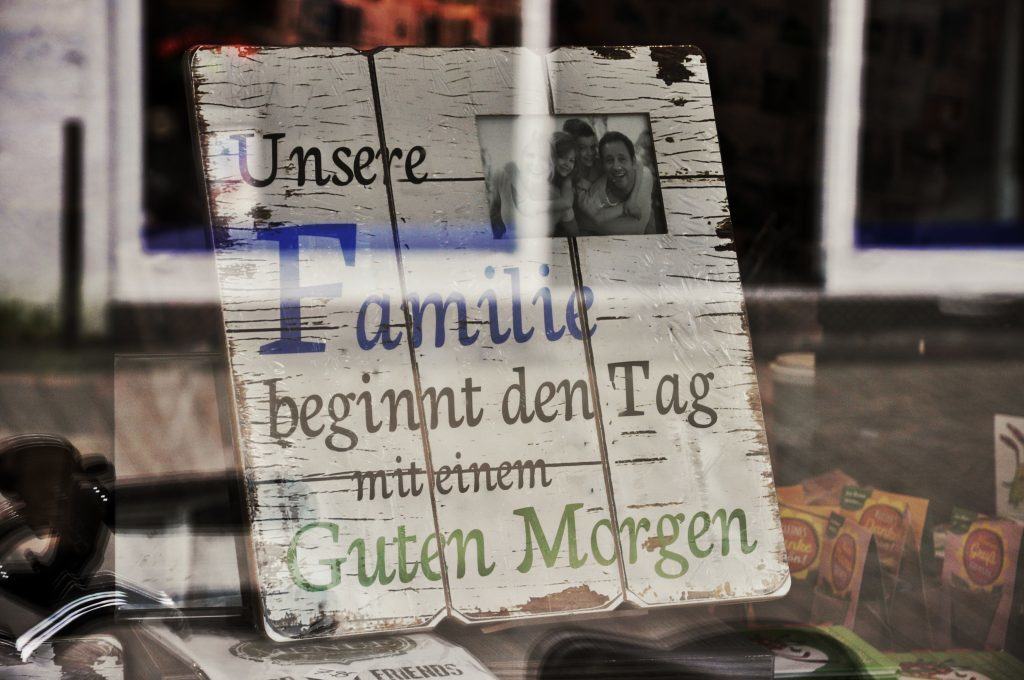 Unsere
Familie
beginnt den Tag
mit einem
Guten Morgen
FRIENDS